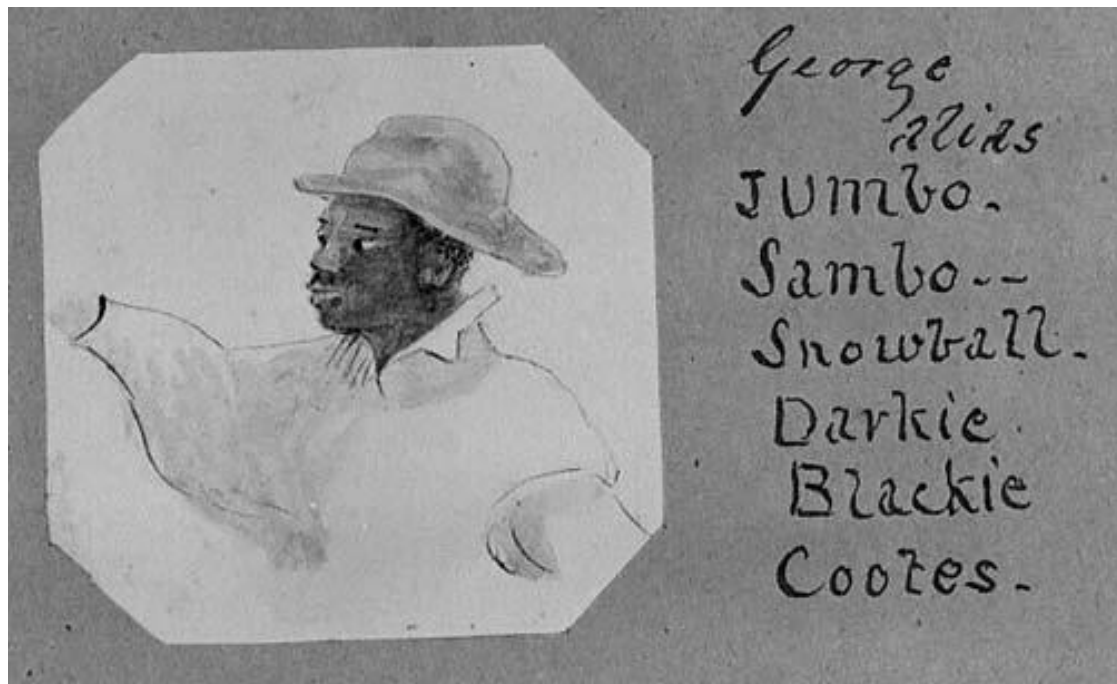 George
alias
JUmbo.
Sambo--
Snowball.
Darkie.
Blackie
Cootes.